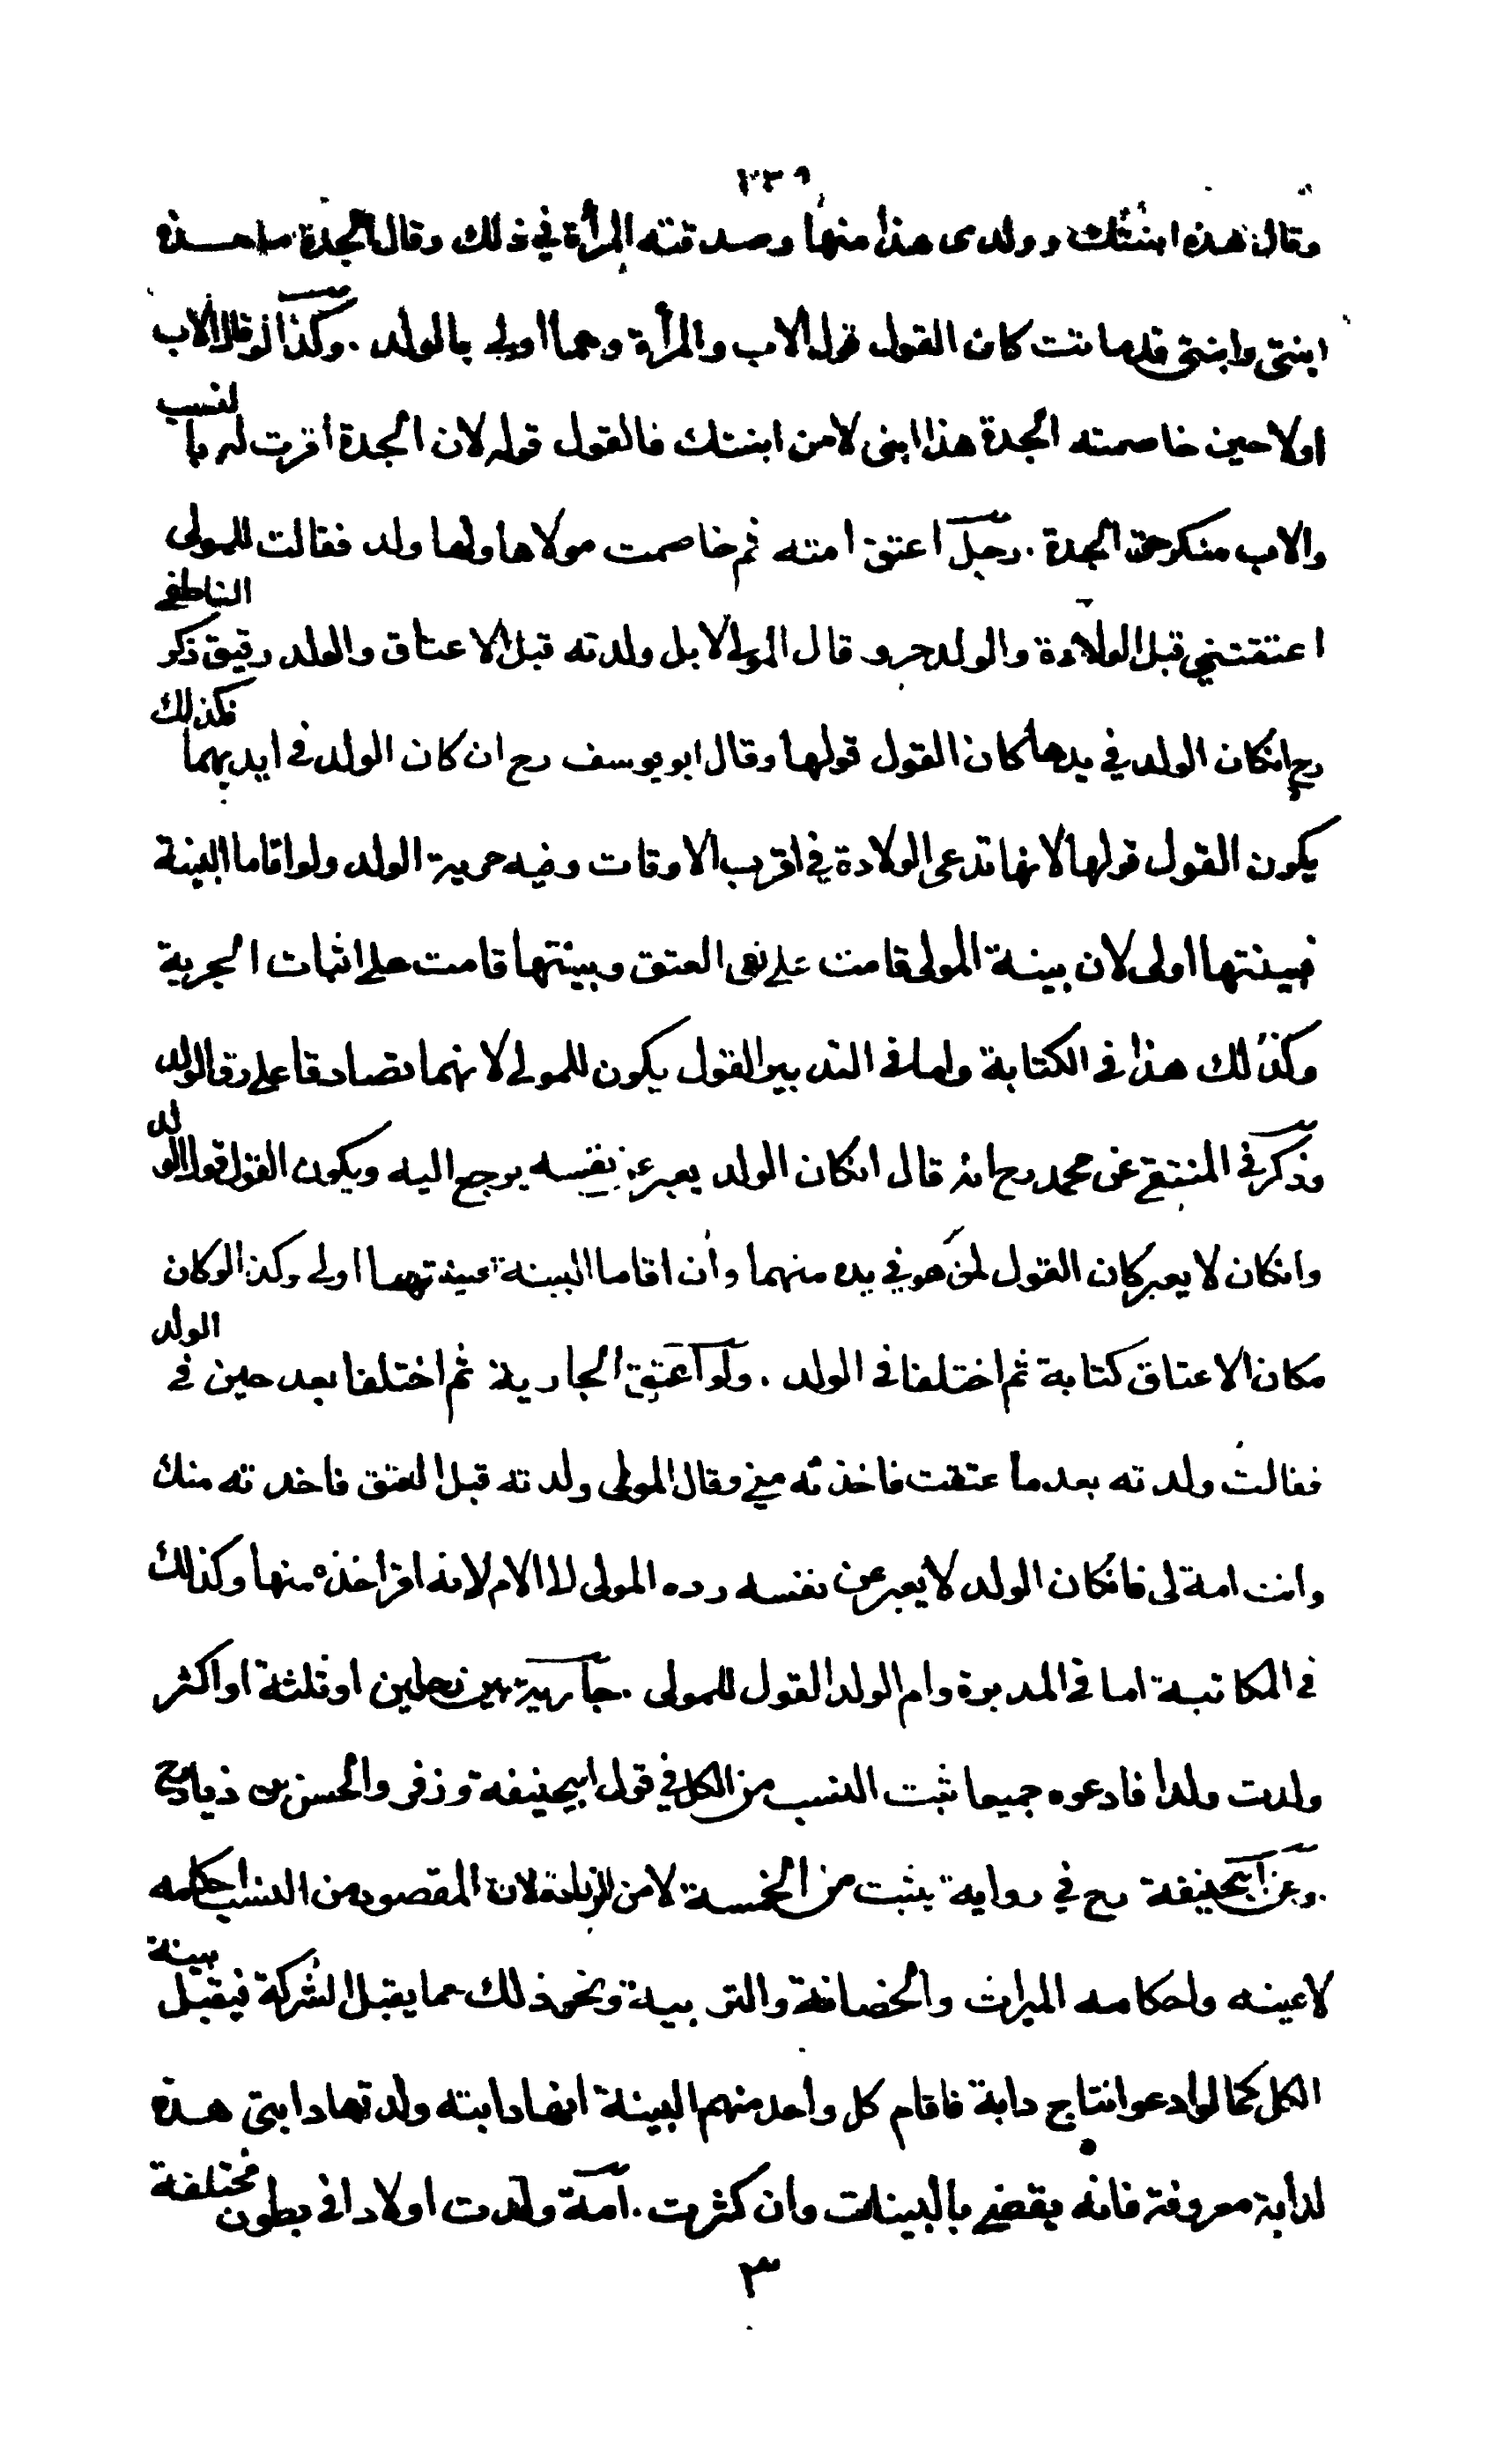 ٢٣٩
وقال هذه ابنتك وولدى هذا منها وصدقته المرأة في ذلك وقال الجدة ما هذه
ابنتى وابنتى قد ماتت كان القول قول الاب والمرأة وهما اولى بالولد . وكذا لو قال الاب
اولا حين خاصمته الجدة هذا ابنى لا من ابنتك فالقول قوله لان الجدة اقرت له بالنسب
والاب منكر حق الجدة . رجل اعتق امته ثم خاصمت مولاها ولها ولد فقالت للمولى
اعتقتني قبل الولادة والولد حر و قال المولى لا بل ولدته قبل الاعتاق والولد رقيق ذكر الناطفي
رح انكان الولد في يدها كان القول قولها وقال ابو يوسف رح ان كان الولد في ايديهما فكذلك
يكون القول قولها لانها تدعى الولادة في اقرب الاوقات وفيه حرية الولد ولو اقاما البينة
فبينتها اولى لان بينة المولى قامت على نفى العتق وبينتها قامت على اثبات الحرية
وكذلك هذا في الكتابة واما في التدبير القول يكون للمولى لانهما تصادقا على رق الولد
وذكر في المنتقى عن محمد رح انه قال انكان الولد يعبر عن نفسه يرجع اليه ويكون القول قول الولد
وانكان لا يعبر كان القول لمن هو في يده منهما وان اقاما البينة فبينتهما اولى وكذا لو كان
مكان الاعتاق كتابة ثم اختلفا في الولد . ولو اعتق الجارية ثم اختلفا بعد حين في الولد
فقالت ولدته بعد ما عتقت فاخذته مني وقال المولى ولدته قبل العتق فاخذته منك
وانت امة لى فانكان الولد لا يعبر عن نفسه رده المولى الى الام لانه اقر اخذه منها وكذلك
في المكاتبة اما في المدبرة وام الولد القول للمولى . جارية بين رجلين او ثلثة او اكثر
ولدت ولدا فادعوه جميعا ثبت النسب من الكل في قول ابيحنيفة وزفر والحسن بن زياد رح
وعن ابيحنيفة رح في رواية يثبت من الخمسة لا من الزيادة لان المقصود من النسب احكامه
لا عينه واحكامه الميراث والحضانة والتربية ونحو ذلك مما يقبل الشركة فيقبل بينة
الكل كما لو ادعوا نتاج دابة فاقام كل واحد منهم البينة انها دابته ولدتها دابتى هذه
لدابة معروفة فانه يقضي بالبينات وان كثرت . امة ولدت اولادا في بطون مختلفة
٣